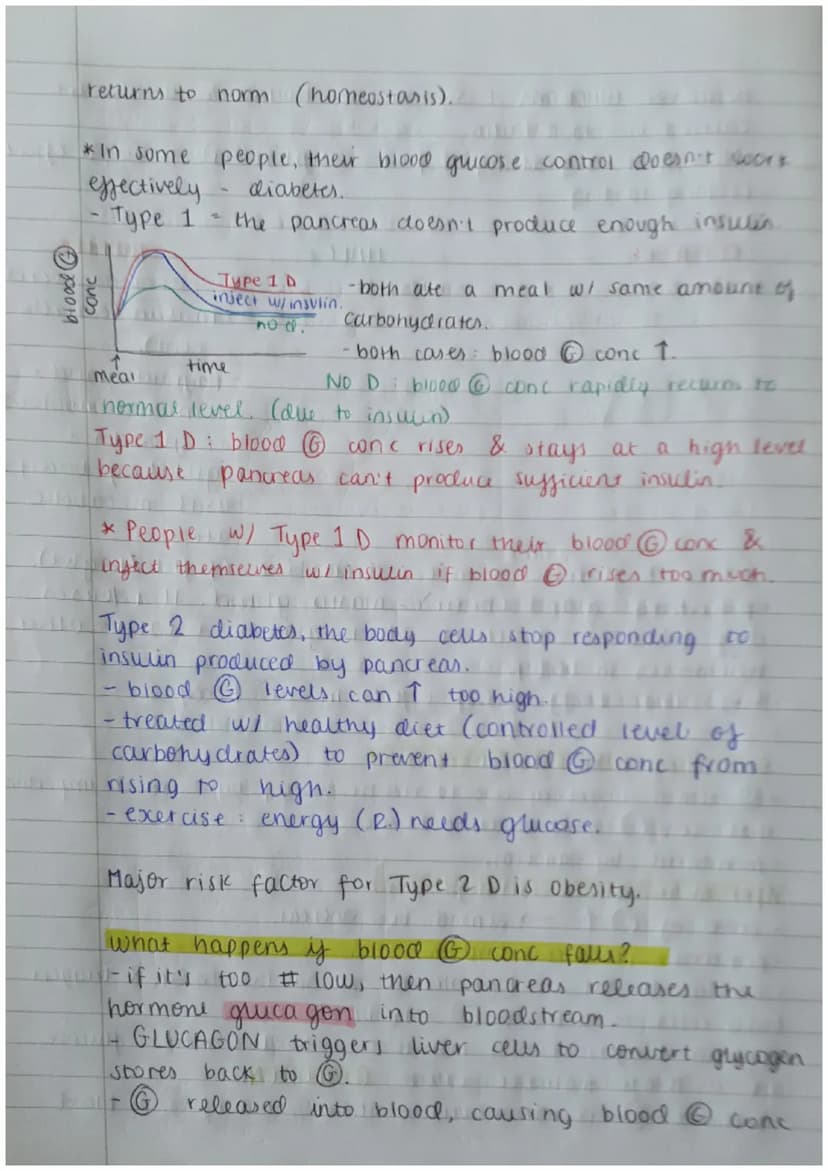 returns to norm (homeostasis).
*In some people, their blood glucose control doesn't work
effectively - diabetes.
- Type 1 = the pancreas doesn't produce enough insulin
blood Ⓖ
conc
Type 1 D
inject w/ insulin.
no d.
meal
time
- both ate a meal w/ same amount of
carbohydrates.
- both cases: blood Ⓖ conc ↑.
NO D: blood Ⓖ conc rapidly returns to
normal level. (due to insulin)
Type 1 D: blood Ⓖ conc rises & stays at a high level
because pancreas can't produce sufficient insulin
* People w/ Type 1 D monitor their blood Ⓖ conc &
inject themselves w/ insulin if blood Ⓖ rises too much.
Type 2 diabetes, the body cells stop responding to
insulin produced by pancreas.
- blood Ⓖ levels can ↑ too high.
- treated w/ healthy diet (controlled level of
carbohydrates) to prevent blood Ⓖ conc from
rising to high.
- exercise: energy (R.) needs glucose.
Major risk factor for Type 2 D is obesity.
What happens if blood Ⓖ conc falls?
- if it's too low, then pancreas releases the
hormone glucagon into bloodstream.
- GLUCAGON triggers liver cells to convert glycogen
stores back to Ⓖ.
- Ⓖ released into blood, causing blood Ⓖ conc